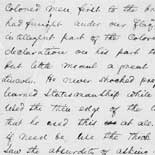 Colored men first to the
had fought under our flag
intelligent part of the Colored
declaration on his part to
But little moral a great
lincoln. He never shocked prej
learned Statesmanship while
Used the thin edge of the
that he used this at all.
if need be, use the thick
Saw the absurdity of asking